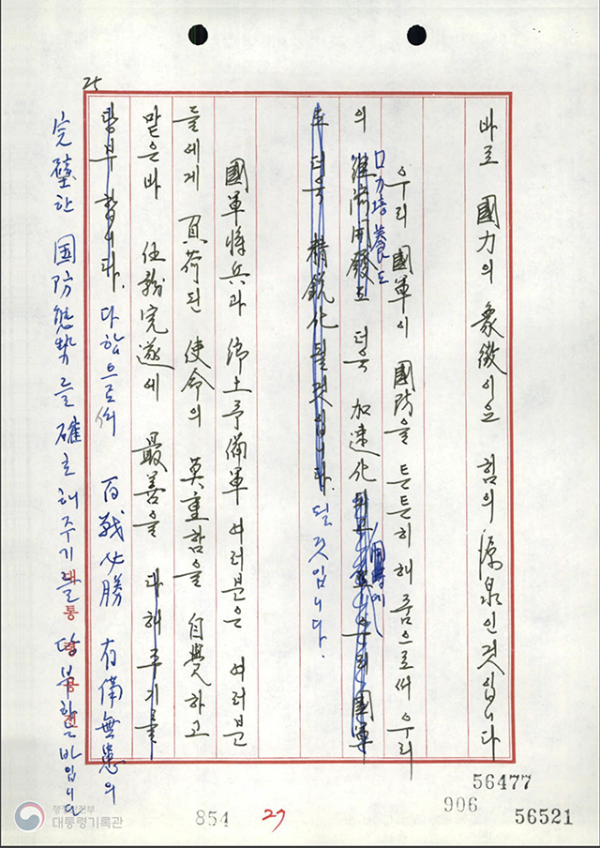 25
바로 國力의 象徵이요 힘의 源泉인 것입니다
우리 國軍이 國防을 튼튼히 해 줌으로써 우리
의 經濟開發도 더욱 加速化되고 우리 國軍
國力培養도
同時에
도 더욱 精銳化될 것입니다. 될 것입니다.
國軍將兵과 鄕土予備軍 여러분은 여러분
들에게 負荷된 使命의 莫重함을 自覺하고
맡은바 任務完遂에 最善을 다해 주기를
당부합니다. 다함으로써 百戰必勝 有備無患의
完璧한 国防態勢를 確立해 주기를 당부하는 바입니다
대통령
56477
906
56521
854
27
행정안전부
대통령기록관